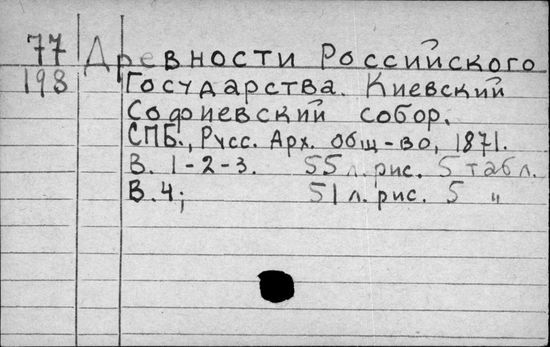 77 Древности Российского
198 Государства. Киевский
Софиевский собор.
СПБ., Русс. Арх. общ-во, 1871.
В. 1-2-3. 55 л. рис. 5 табл.
В. 4; 51 л. рис. 5 "